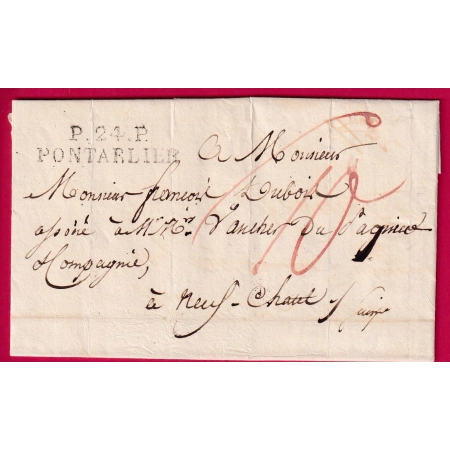 P. 24. P.
PONTARLIER
A Monsieur
Monsieur françois Dubois
associé à Mrs. Vaucher Du Pasquier
& Compagnie,
à Neuf-Chatel Suisse